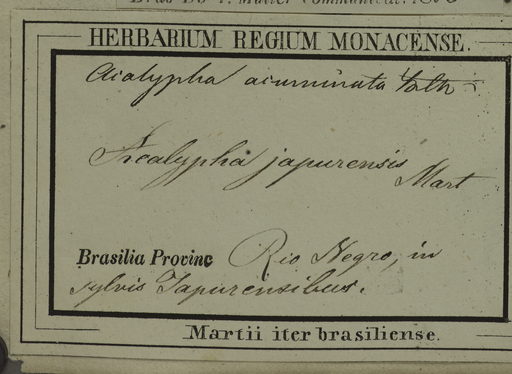 HERBARIUM REGIUM MONACENSE.
Acalypha acuminata
Acalypha japurensis
Mart
Brasilia Provinc Rio Negro, in
sylvis Japurensibus.
Martii iter brasiliense.